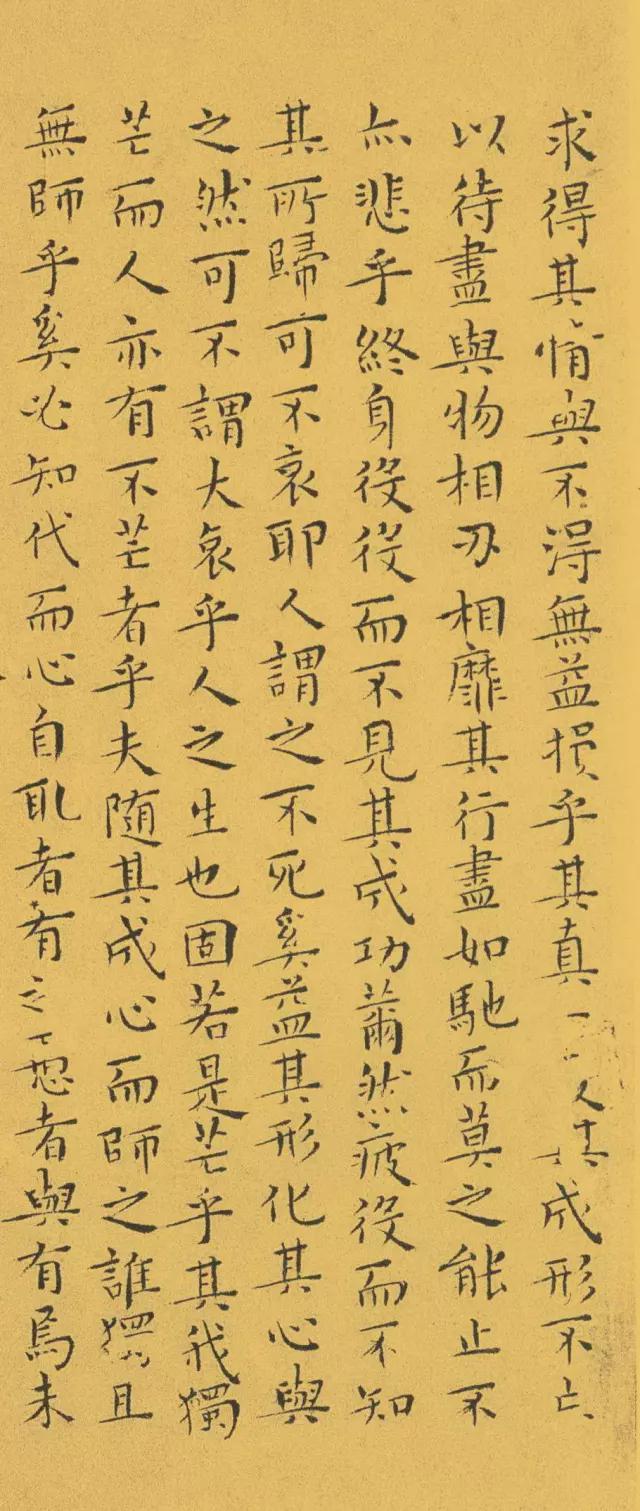 求得其情與不得無益損乎其真一其成形不亡
以待盡與物相刃相靡其行盡如馳而莫之能止不
亦悲乎終身役役而不見其成功薾然疲役而不知
其所歸可不哀耶人謂之不死奚益其形化其心與
之然可不謂大哀乎人之生也固若是芒乎其我獨
芒而人亦有不芒者乎夫随其成心而師之誰獨且
無師乎奚必知代而心自取者有之愚者與有焉未